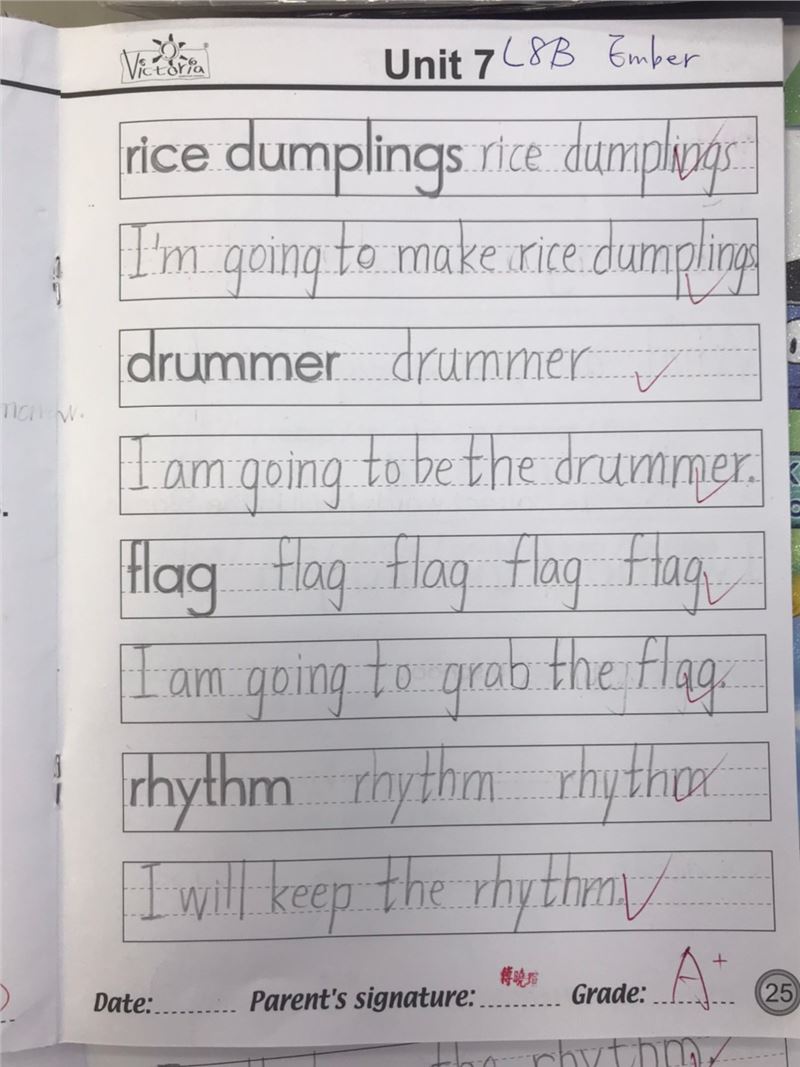 Victoria
Unit 7 L8B Ember
rice dumplings rice dumplings
I'm going to make rice dumplings.
drummer drummer
I am going to be the drummer.
flag flag flag flag flag
I am going to grab the flag.
rhythm rhythm rhythm
I will keep the rhythm.
Date: Parent's signature: Grade: A+
25
the rhythm.